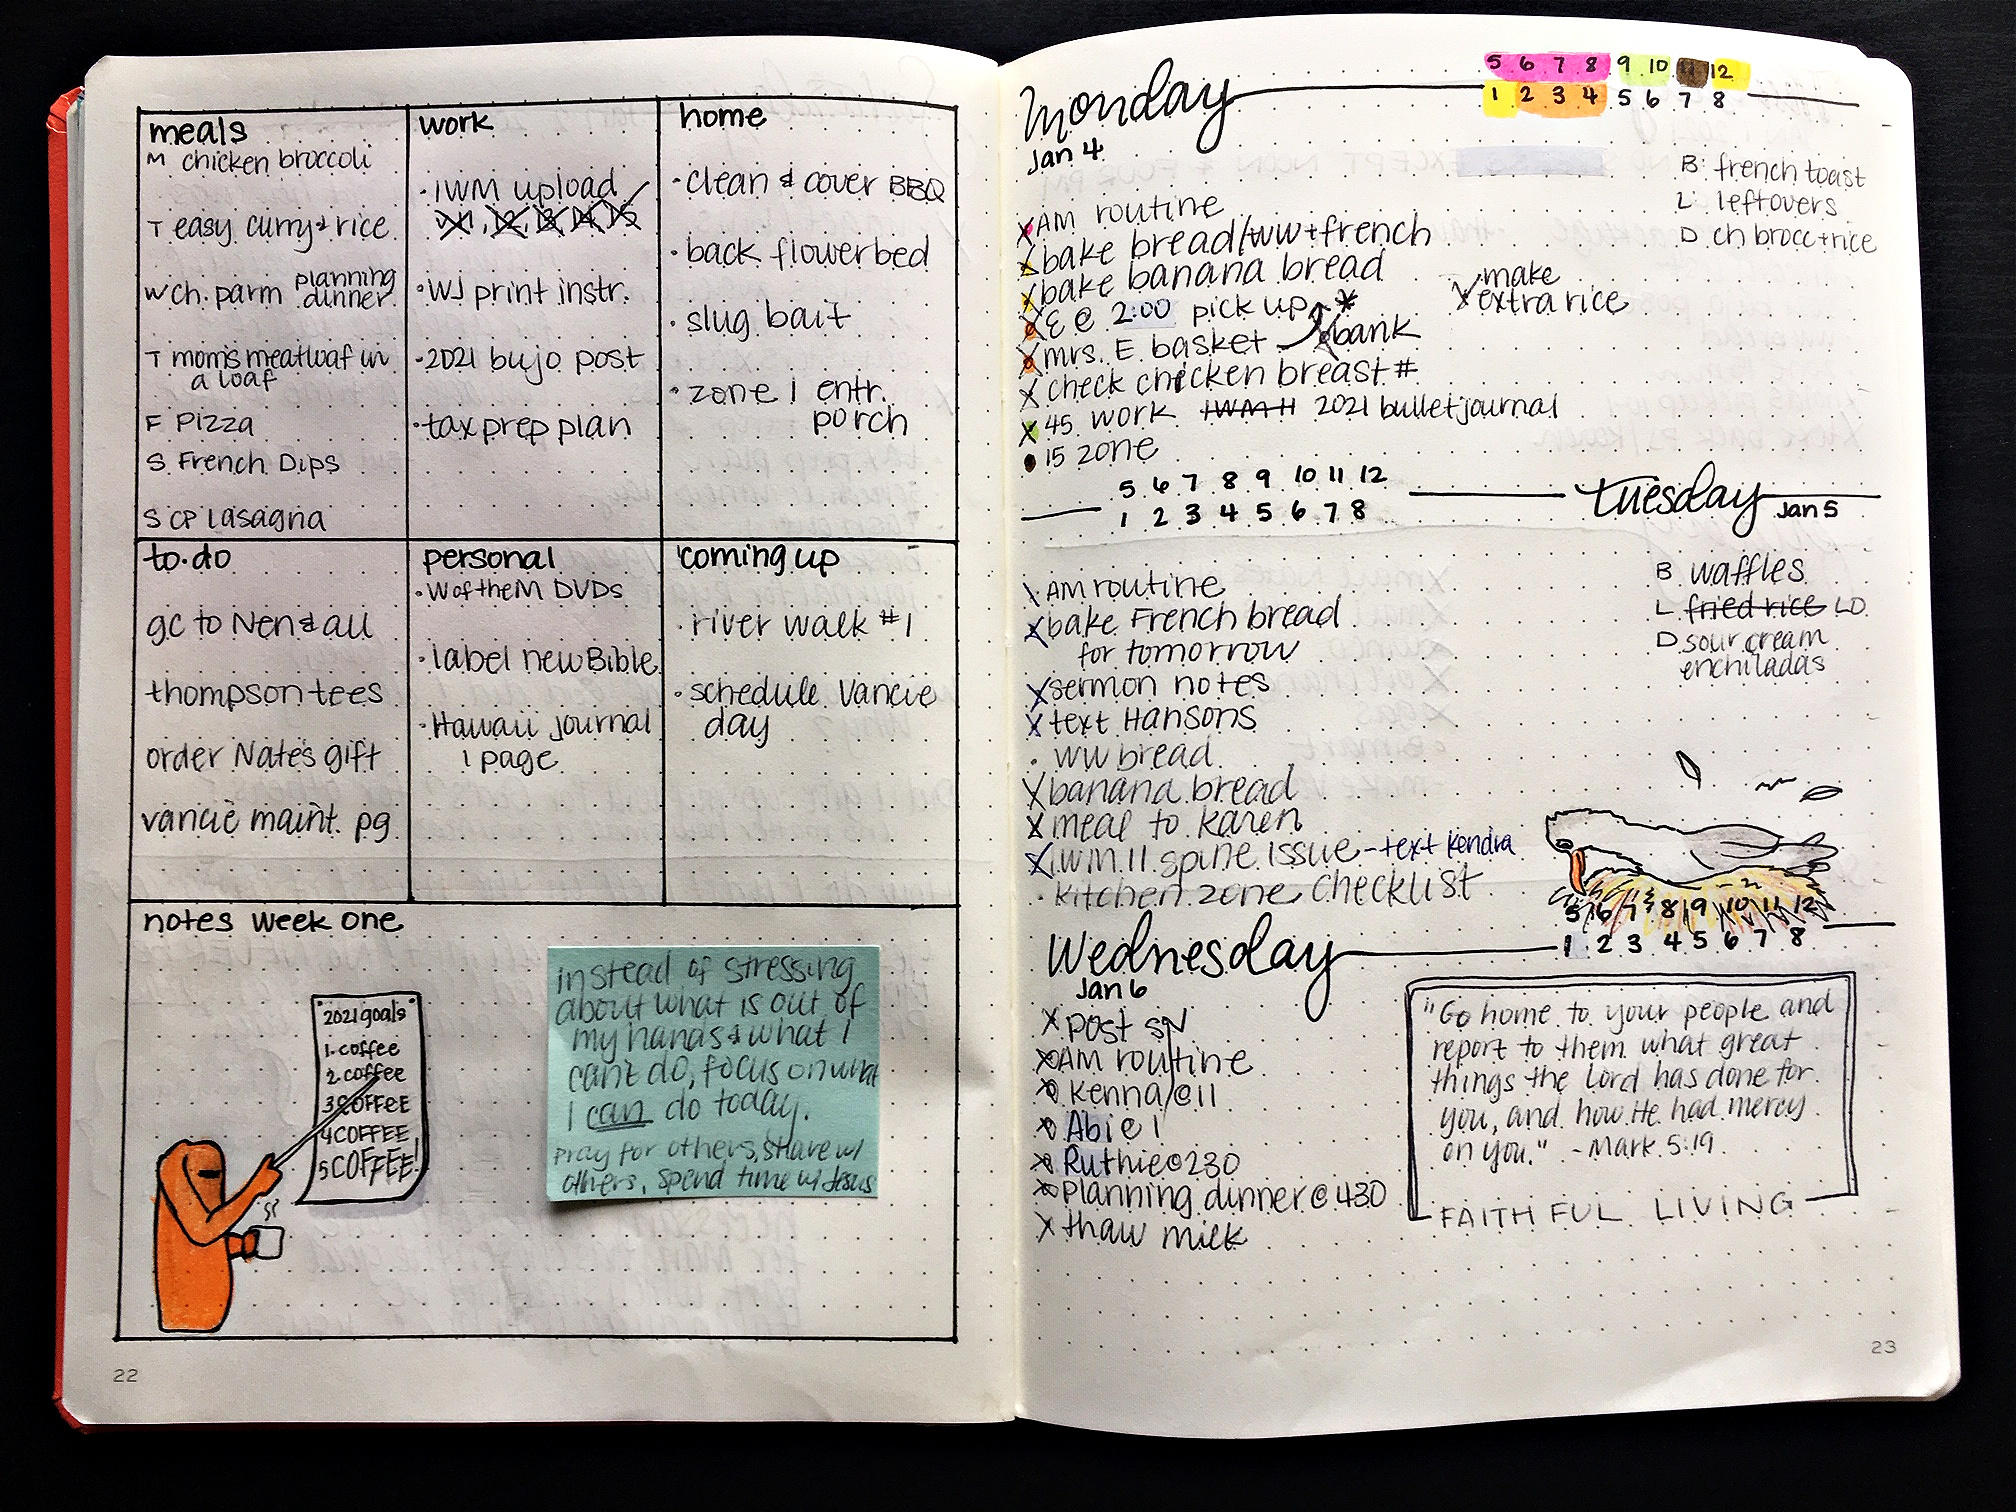 meals
M chicken broccoli
T easy curry & rice
W ch. parm planning dinner
T mom's meatloaf in
a loaf
F Pizza
S French Dips
S CP lasagna
work
· IWM upload
11, 12, 13, 14, 15
· WJ print instr.
· 2021 bujo post
· tax prep plan
home
· clean & cover BBQ
· back flowerbed
· slug bait
· zone 1 entr.
porch
to.do
gc to Nen & all
thompson tees
order Nate's gift
vancie maint. pg
personal
· W of the M DVDs
· label new Bible
· Hawaii journal
1 page
coming up
· river walk #1
· schedule Vancie
day
notes week one
2021 goals
1. coffee
2. coffee
3 COFFEE
4 COFFEE
5 COFFEE!
instead of stressing
about what is out of
my hands & what I
can't do, focus on what
I can do today.
pray for others, share w/
others, spend time w/ Jesus
22
monday
Jan 4
5 6 7 8 9 10 11 12
1 2 3 4 5 6 7 8
B: french toast
L: leftovers
D ch brocc + rice
X AM routine
X bake bread/ww + french
X bake banana bread
X E @ 2:00 pick up *
X mrs. E basket
X bank
X make
extra rice
X check chicken breast #
X 45 work IWM 11 2021 bullet journal
· 15 zone
5 6 7 8 9 10 11 12
1 2 3 4 5 6 7 8
tuesday Jan 5
B waffles
L fried rice LO
D sour cream
enchiladas
\ AM routine
X bake French bread
for tomorrow
X sermon notes
X text Hansons
· WW bread
X banana bread
X meal to Karen
X I.W.M. 11 spine issue - text Kendra
· kitchen zone checklist
5 6 7 8 9 10 11 12
1 2 3 4 5 6 7 8
Wednesday
Jan 6
X post SN
X AM routine
X Kenna @ 11
X Abi @ 1
X Ruthie @ 230
X planning dinner @ 430
X thaw milk
"Go home to your people and
report to them what great
things the Lord has done for
you, and how He had mercy
on you." - Mark 5:19
FAITHFUL LIVING
23